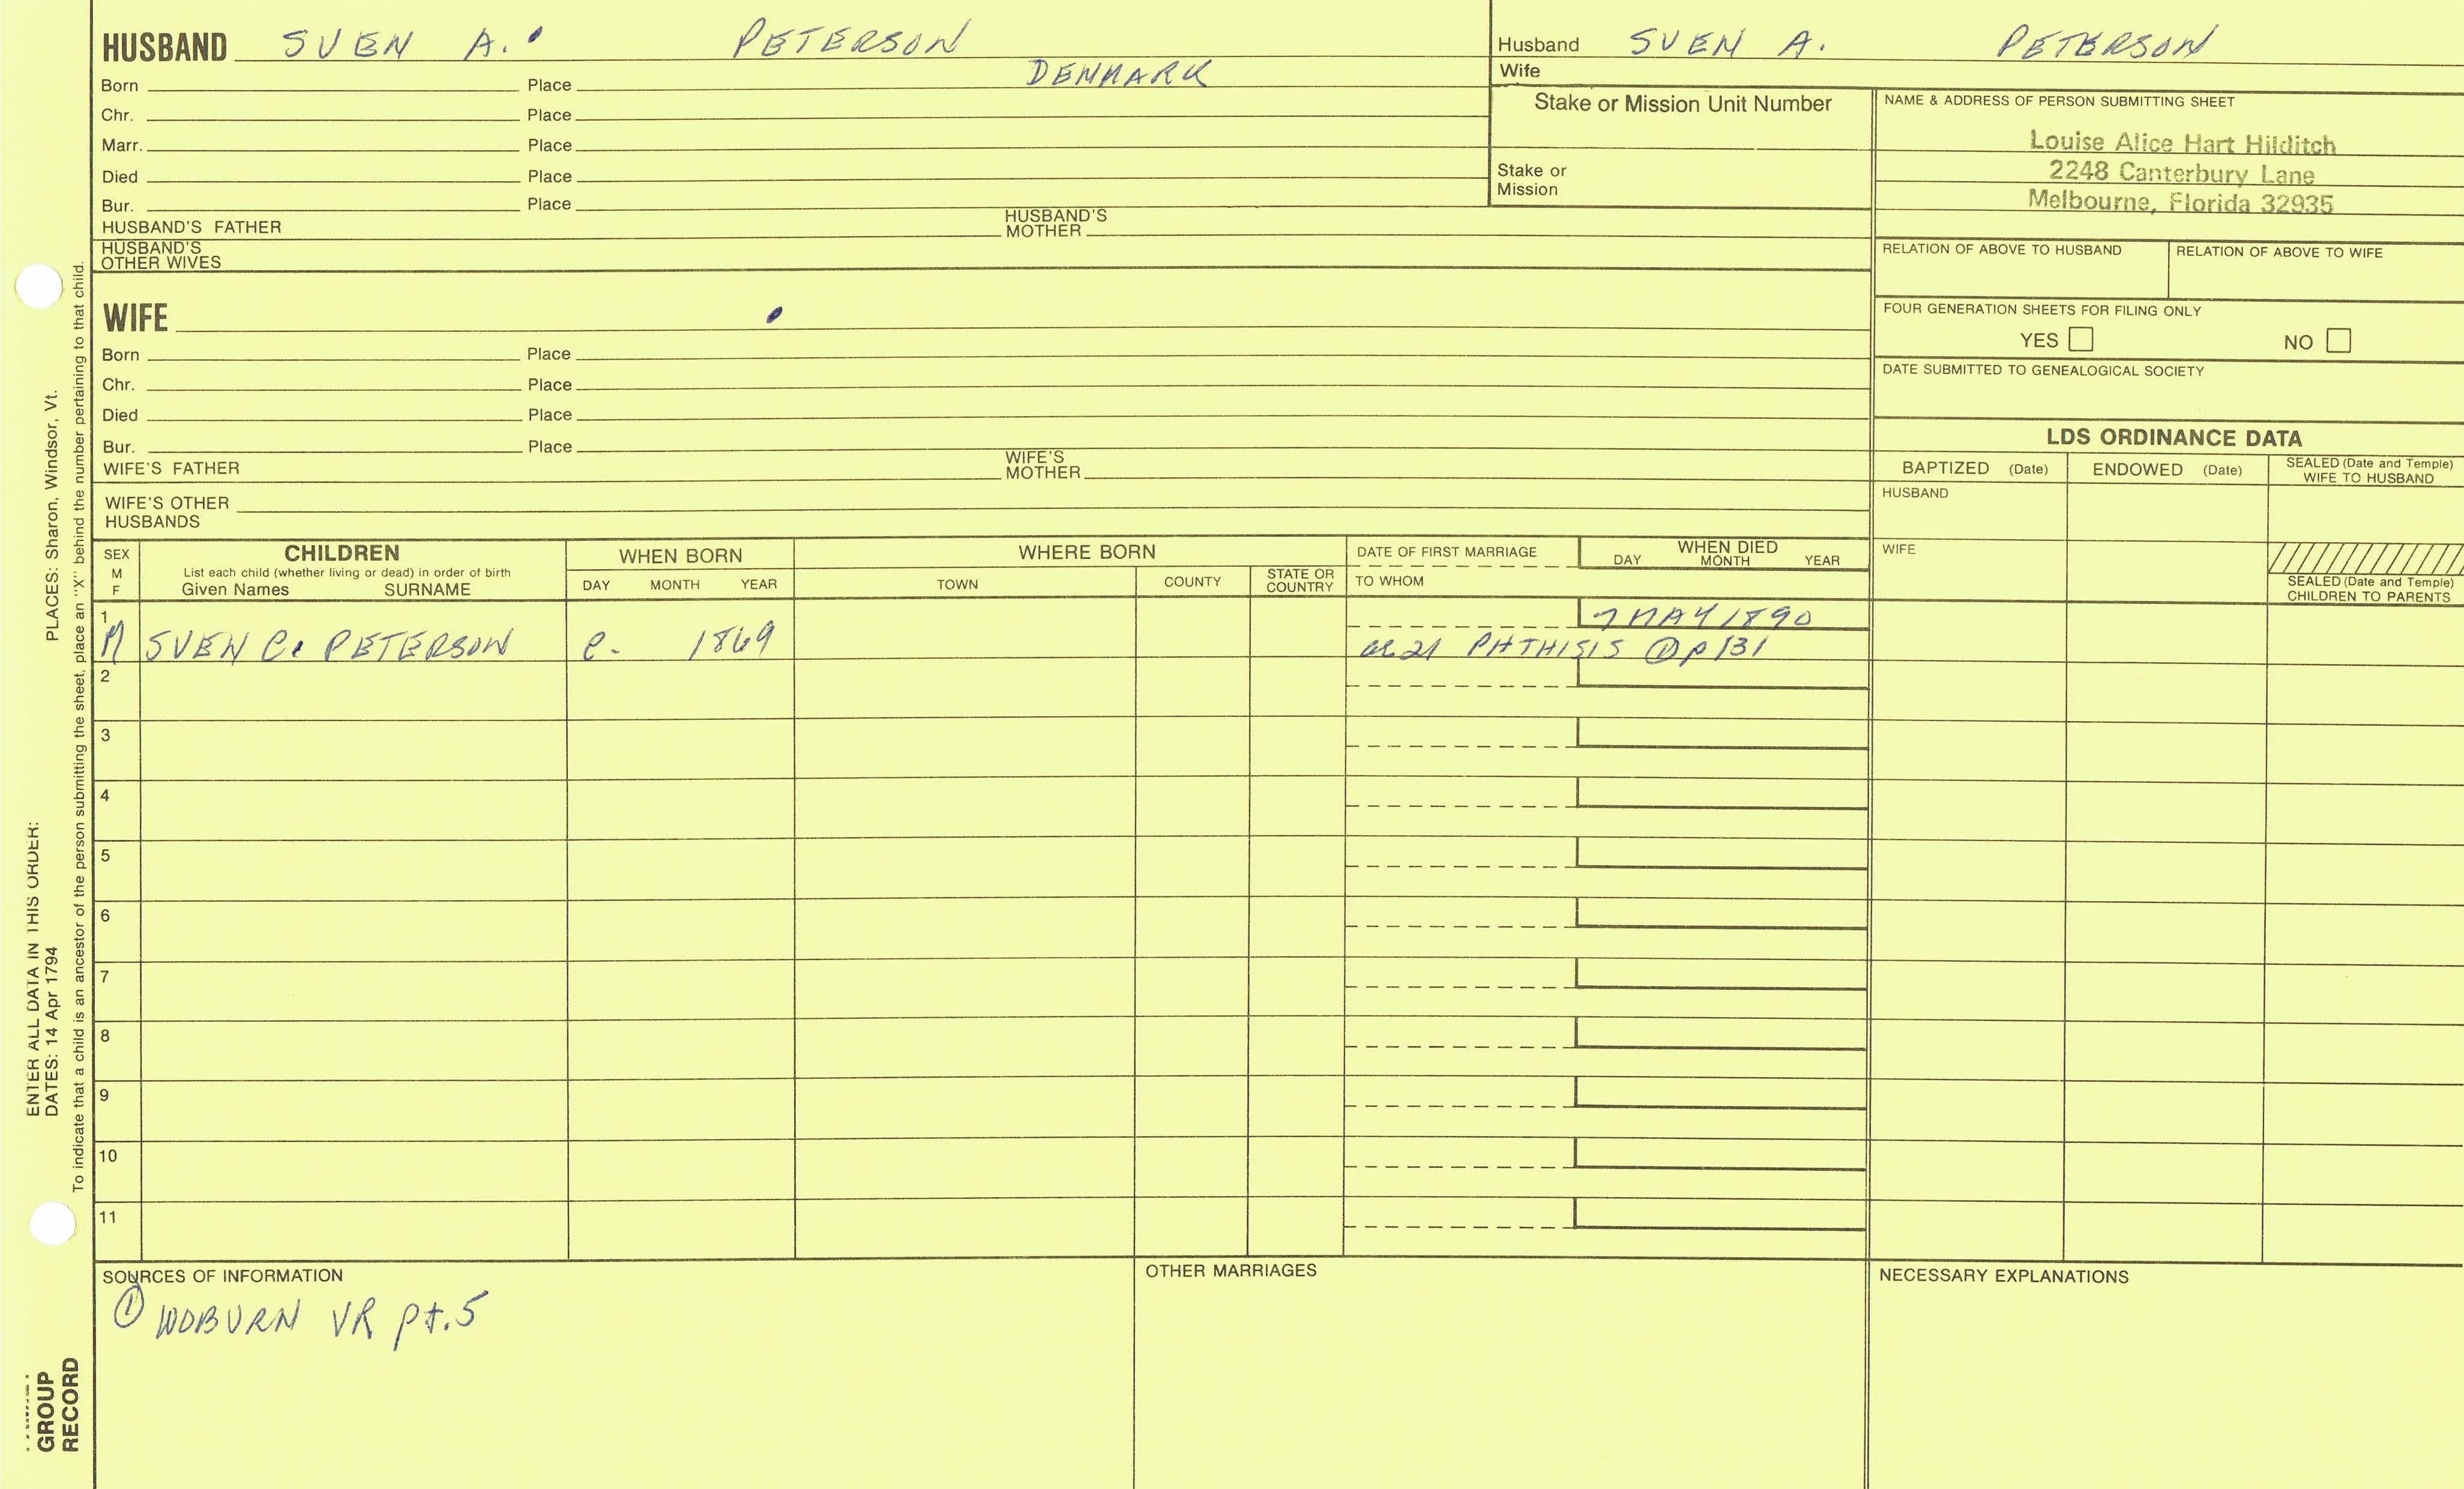 HUSBAND SVEN A. PETERSON
Born Place DENMARK
Chr. Place
Marr. Place
Died Place
Bur. Place
HUSBAND'S FATHER HUSBAND'S MOTHER
HUSBAND'S OTHER WIVES
Husband SVEN A. PETERSON
Wife
Stake or Mission Unit Number
Stake or Mission
NAME & ADDRESS OF PERSON SUBMITTING SHEET
Louise Alice Hart Hilditch
2248 Canterbury Lane
Melbourne, Florida 32935
RELATION OF ABOVE TO HUSBAND RELATION OF ABOVE TO WIFE
FOUR GENERATION SHEETS FOR FILING ONLY
YES NO
DATE SUBMITTED TO GENEALOGICAL SOCIETY
WIFE
Born Place
Chr. Place
Died Place
Bur. Place
WIFE'S FATHER WIFE'S MOTHER
WIFE'S OTHER HUSBANDS
LDS ORDINANCE DATA
BAPTIZED (Date) ENDOWED (Date) SEALED (Date and Temple) WIFE TO HUSBAND
HUSBAND
WIFE
SEALED (Date and Temple) CHILDREN TO PARENTS
SEX M F
CHILDREN
List each child (whether living or dead) in order of birth
Given Names SURNAME
WHEN BORN
DAY MONTH YEAR
WHERE BORN
TOWN COUNTY STATE OR COUNTRY
DATE OF FIRST MARRIAGE
TO WHOM
WHEN DIED
DAY MONTH YEAR
1 7 MAY 1890
M SVEN C. PETERSON c. 1869 ae 21 PHTHISIS ① p 131
2
3
4
5
6
7
8
9
10
11
SOURCES OF INFORMATION
① WOBURN VR pt.5
OTHER MARRIAGES
NECESSARY EXPLANATIONS
ENTER ALL DATA IN THIS ORDER:
DATES: 14 Apr 1794 PLACES: Sharon, Windsor, Vt.
To indicate that a child is an ancestor of the person submitting the sheet, place an "X" behind the number pertaining to that child.
GROUP
RECORD